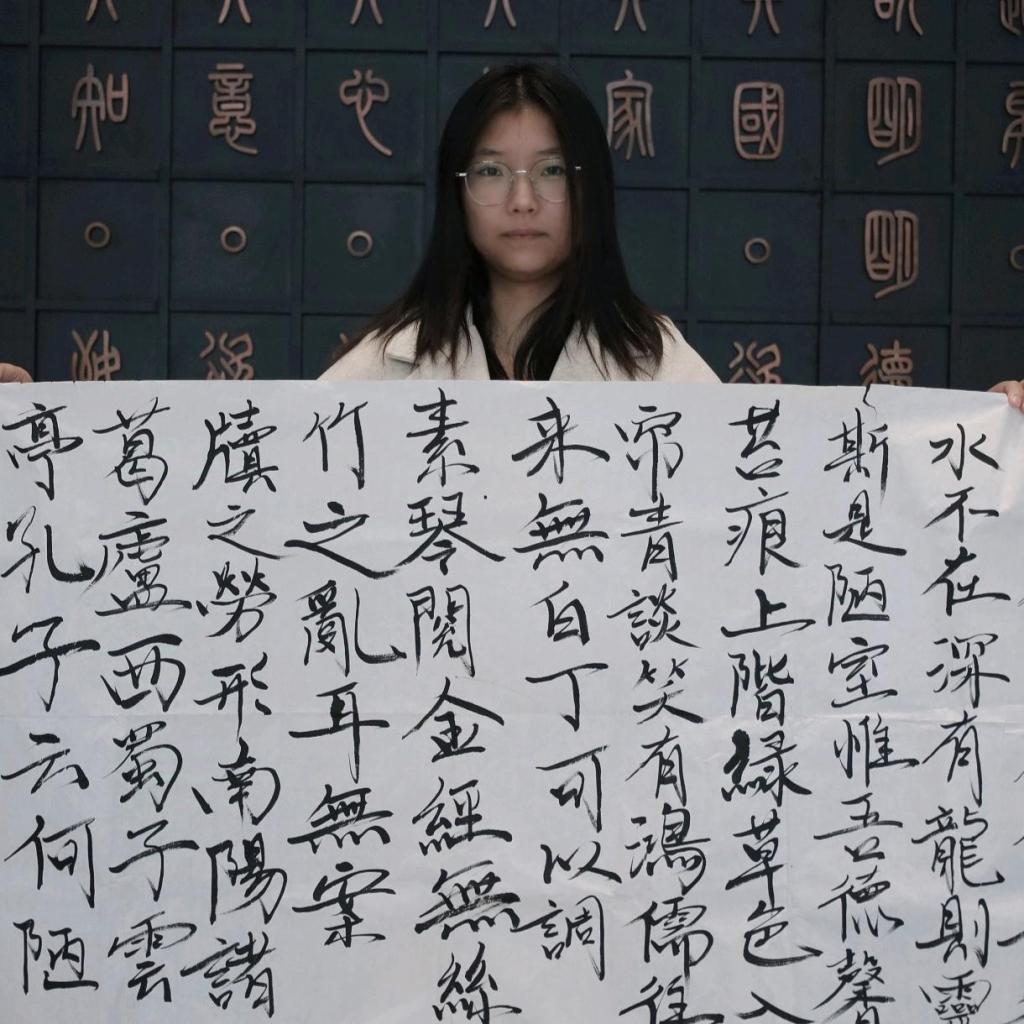 知 意 心 家 國 明
明
德
水不在深有龍則靈
斯是陋室惟吾德馨
苔痕上階緑草色入
帘青談笑有鴻儒往
来無白丁可以調
素琴閲金經無絲
竹之亂耳無案
牘之勞形南陽諸
葛盧西蜀子雲
亭孔子云何陋